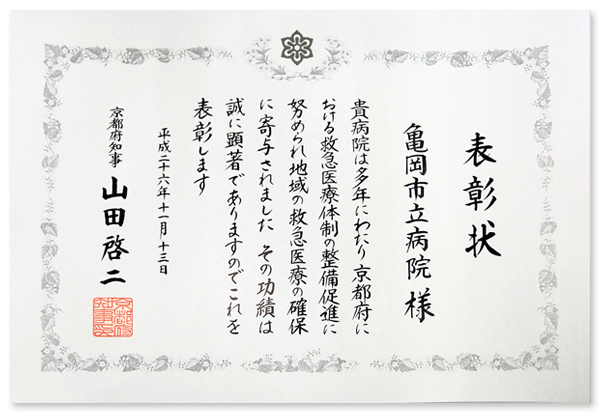 表彰状
亀岡市立病院 様
貴病院は多年にわたり 京都府に
おける救急医療体制の整備促進に
努められ地域の救急医療の確保
に寄与されました その功績は
誠に顕著でありますのでこれを
表彰します
平成二十六年十一月十三日
京都府知事 山田啓二